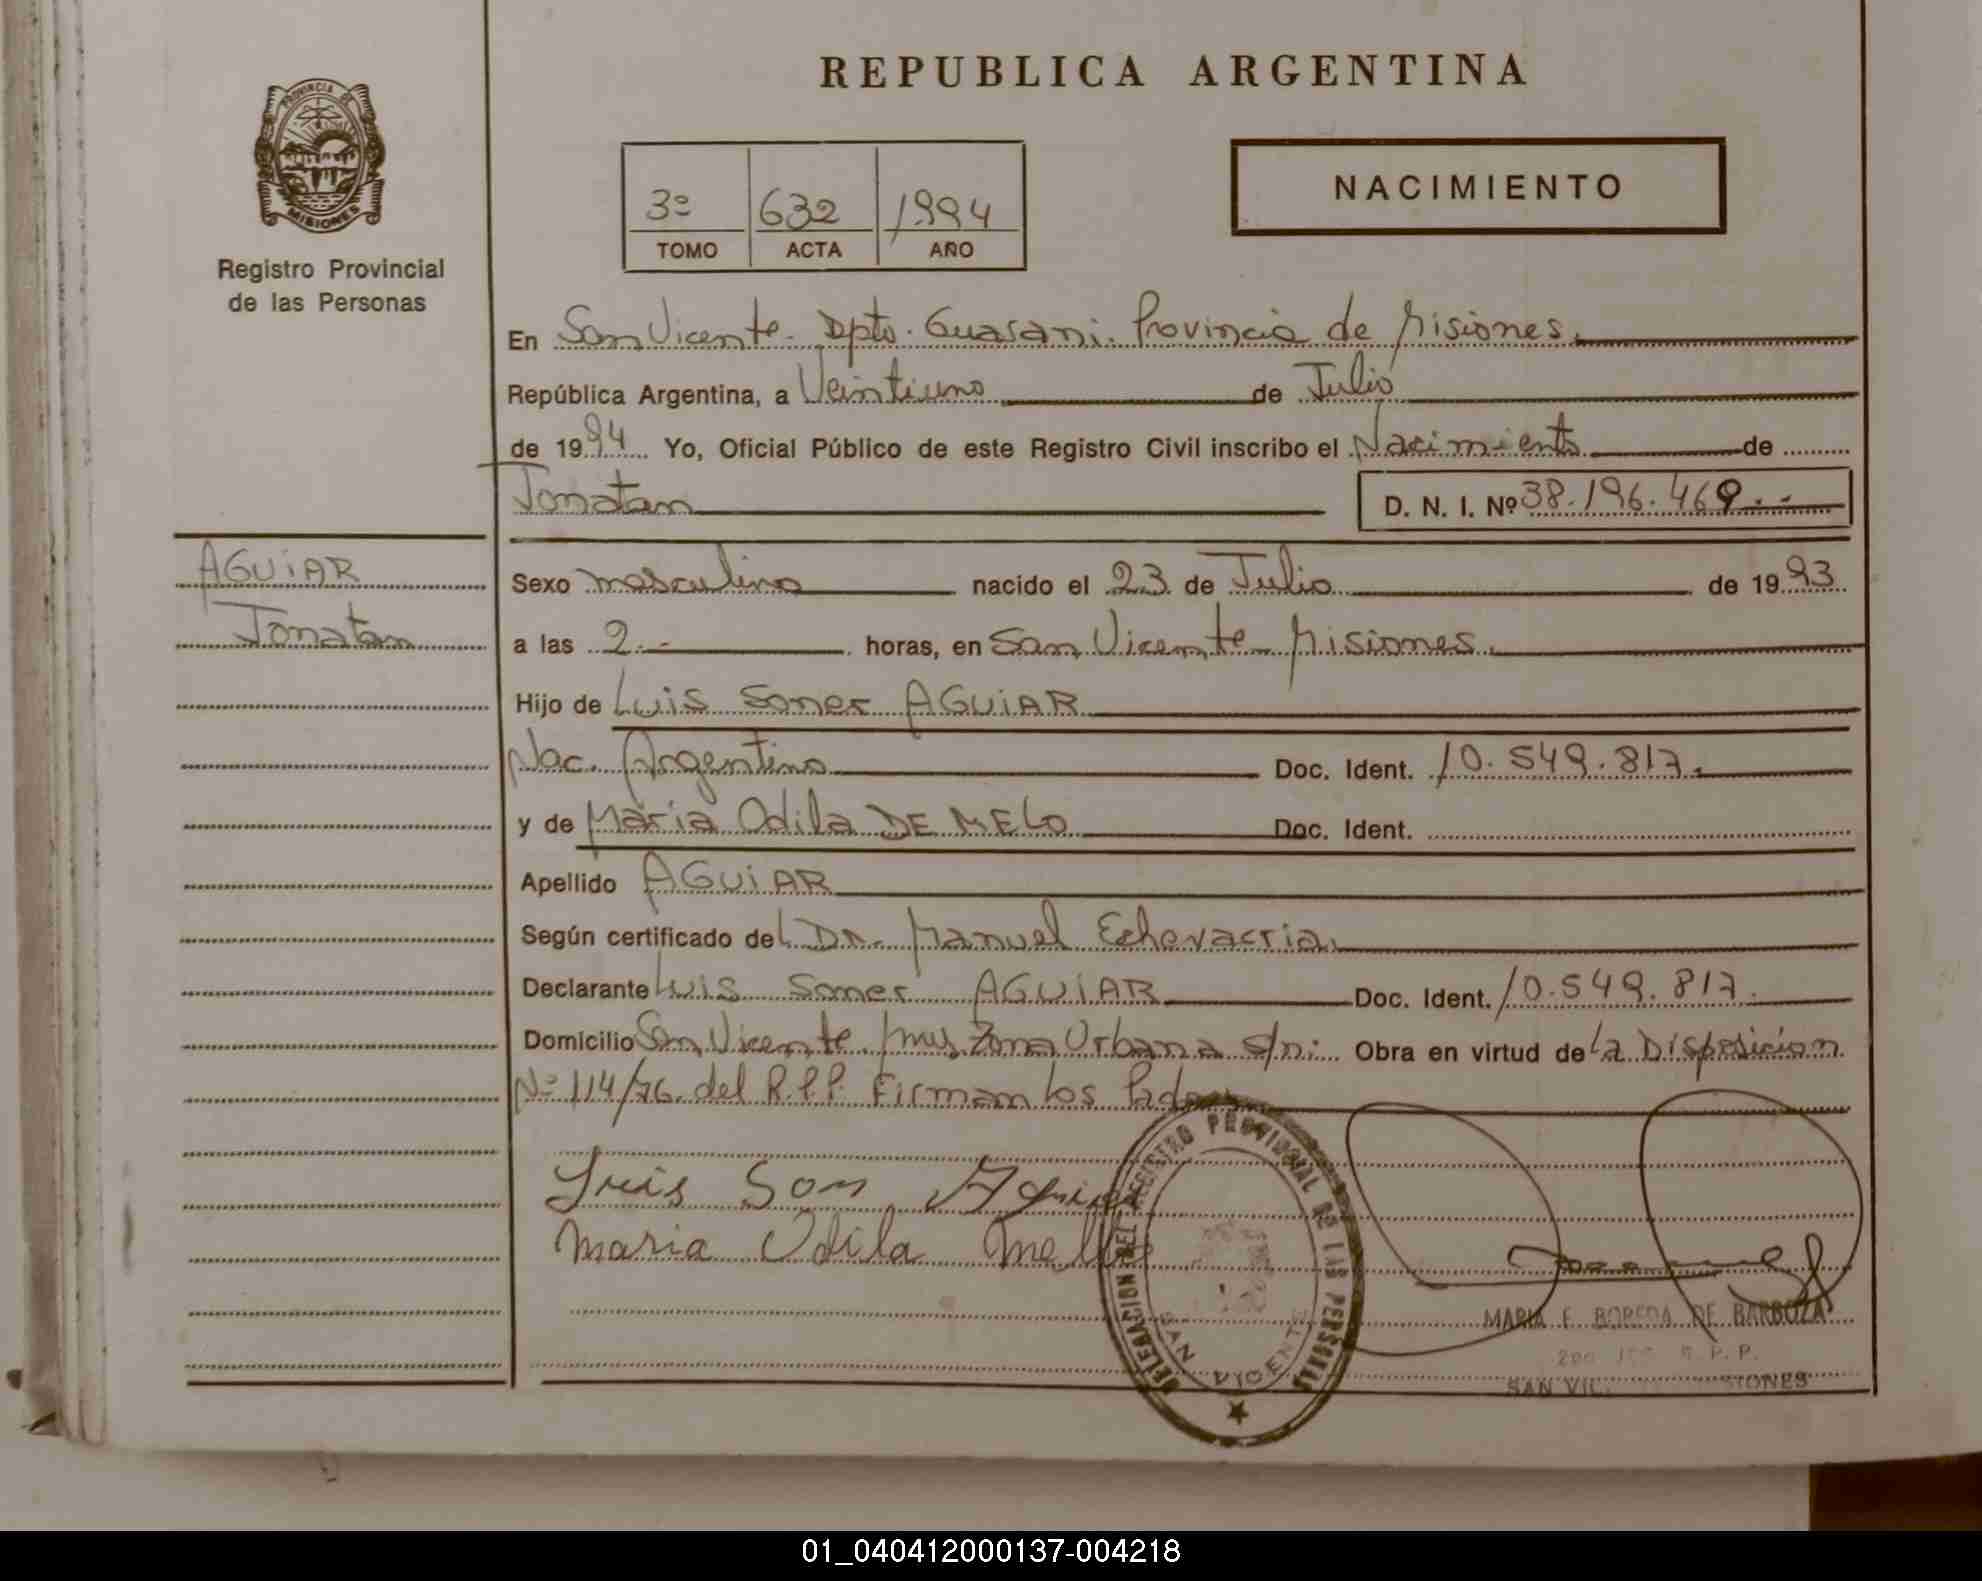 REPUBLICA ARGENTINA
PROVINCIA DE
MISIONES
Registro Provincial
de las Personas
3º 632 1994
TOMO ACTA AÑO
NACIMIENTO
En San Vicente. Dpto. Guarani. Provincia de Misiones.
República Argentina, a Veintiuno de Julio
de 1994 Yo, Oficial Público de este Registro Civil inscribo el Nacimiento de
Jonatan D. N. I. Nº 38.196.469.-
AGUiAR
Jonatan
Sexo masculino nacido el 23 de Julio de 1993
a las 2.- horas, en San Vicente Misiones.
Hijo de Luis Somer AGUiAR
Nac. Argentino Doc. Ident. 10.549.817.
y de Maria Odila DE MELO Doc. Ident.
Apellido AGUiAR
Según certificado del Dr. Manuel Echevarria.
Declarante Luis Somer AGUiAR Doc. Ident. 10.549.817.
Domicilio San Vicente Mns Zona Urbana s/n: Obra en virtud de la Disposición
Nº 114/76 del R.P.P. Firman los Padres
Luis Som Aguiar
Maria Odila Mello
DELEGACION DEL REGISTRO PROVINCIAL DE LAS PERSONAS
SAN VICENTE
MARIA E. DE BARBOZA
R.P.P.
SAN VIC. MISIONES
01_040412000137-004218